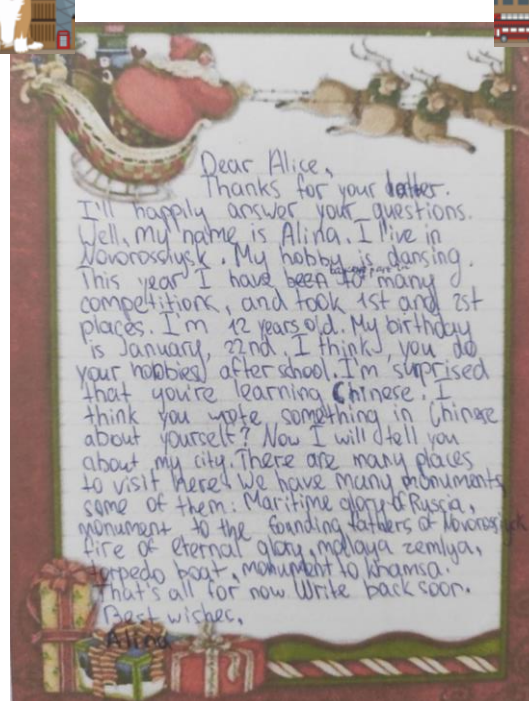 Dear Alice,
Thanks for your letter.
I'll happily answer your questions.
Well, my name is Alina. I live in
Novorosshysk. My hobby is dansing.
This year I have been to many
competitions, and took 1st and 2st
places. I'm 12 years old. My birthday
is January, 22nd. I think, you do
your hobbies afterschool. I'm surprised
that you're learning Chinese. I
think you wote something in Chinese
about yourself? Now I will tell you
about my city. There are many places
to visit here! We have many monuments,
some of them: Maritime glory of Ruscia,
monument to the founding fathers of Novorossiysk
fire of eternal glory, mallaya zemlya,
torpedo boat, monument to khamsa.
That's all for now Write back soon.
Best wishes,
Alina